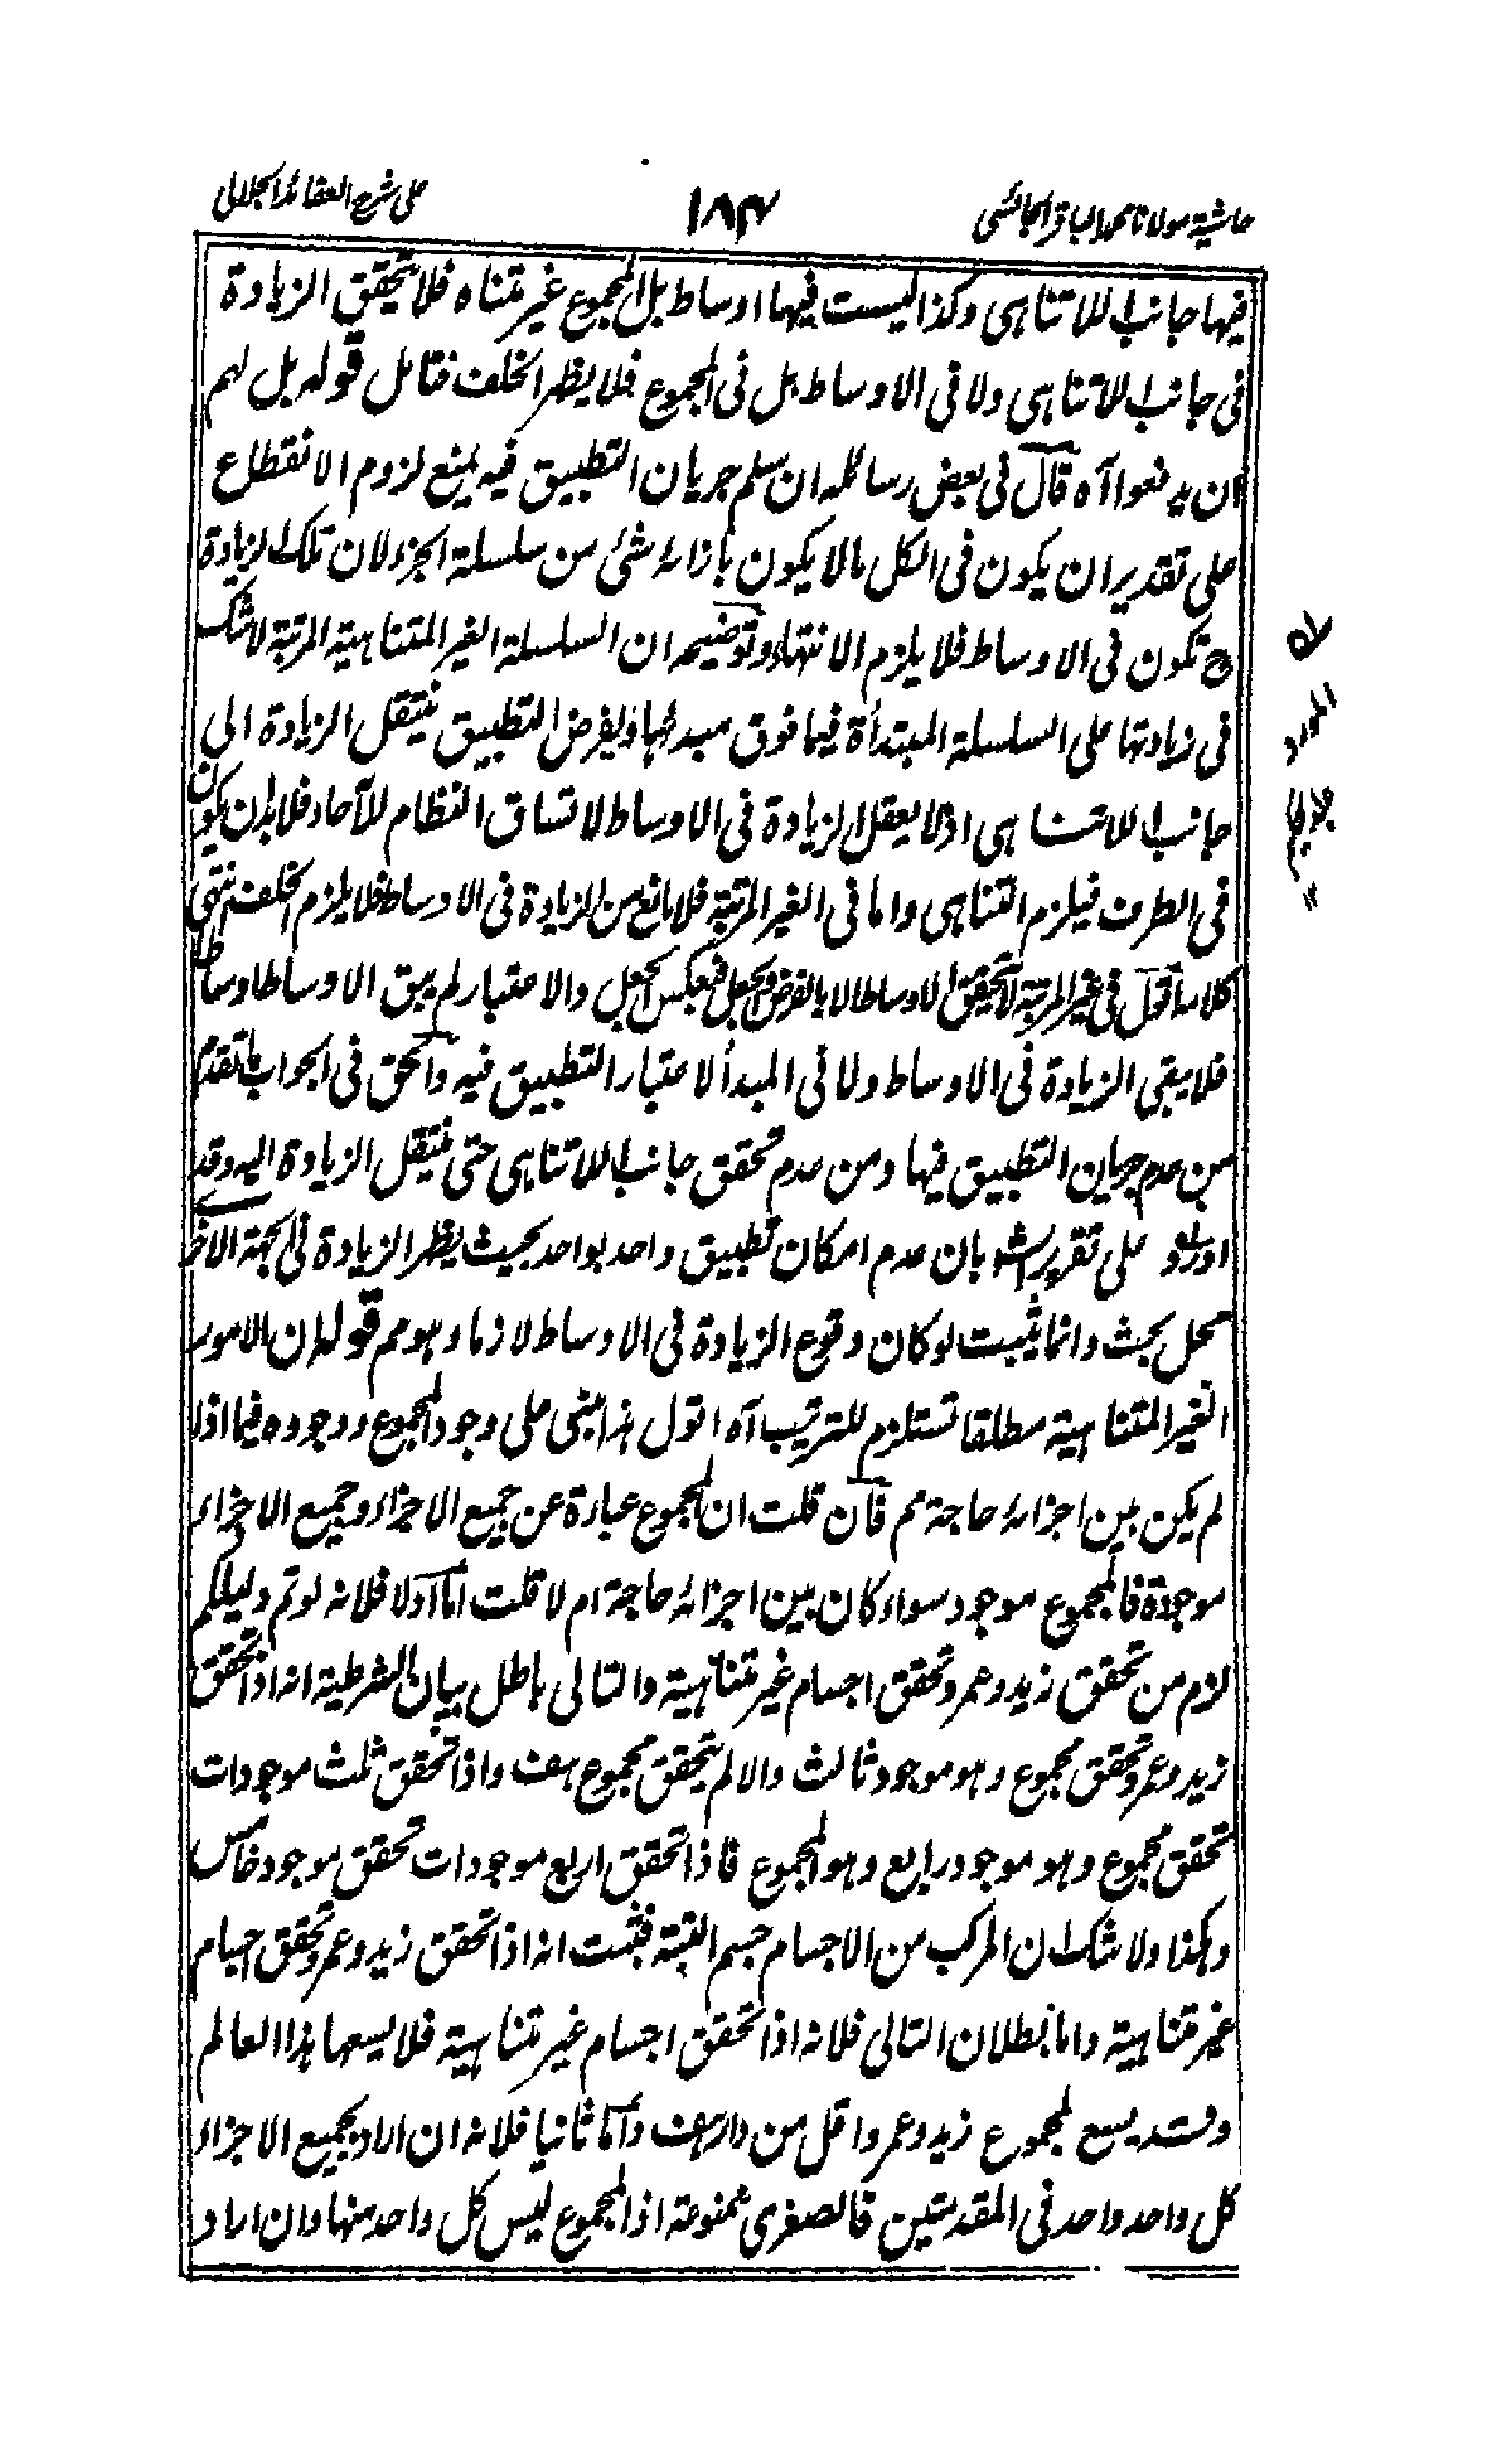 حاشیة مولانا محمد الباقر الجائسی
۱۸۴
علی شرح العقائد الجلالی
فیها جانب اللاتناهی وکذا لیست فیها اوساط بل المجموع غیر متناه فلا یتحقق الزیادة
فی جانب اللاتناهی ولا فی الاوساط بل فی المجموع فلا یظهر الخلف فتامل قوله بل لهم
ان یدفعوا آه قال فی بعض رسائله ان سلم جریان التطبیق فیه یمنع لزوم الانقطاع
علی تقدیر ان یکون فی الکل مالا یکون بازائه شئ من سلسلة الجزء لان تلک الزیادة
ح تکون فی الاوساط فلا یلزم الانتهاء وتوضیحه ان السلسلة الغیر المتناهیة المرتبة لا شک
فی زیادتها علی السلسلة المبتدأة فیما فوق مبدئها ویفرض التطبیق ینتقل الزیادة الی
جانب اللاتناهی اذ لا یعقل الزیادة فی الاوساط لاتساق النظام للآحاد فلا بد ان یکون
فی الطرف فیلزم التناهی واما فی الغیر المرتبة فلا مانع من الزیادة فی الاوساط فلا یلزم الخلف انتهی
کلامه اقول فی غیر المرتبة لا یتحقق الاوساط الا بالفرض والجعل فبعکس الجعل والاعتبار لم یبق الاوساط اوساطا
فلا یبقی الزیادة فی الاوساط ولا فی المبدأ لاعتبار التطبیق فیه والحق فی الجواب ما تقدم
من عدم جریان التطبیق فیها ومن عدم تحقق جانب اللاتناهی حتی ینتقل الزیادة الیه وقد
اورد علی تقریر الش بان عدم امکان تطبیق واحد بواحد بحیث یظهر الزیادة فی الجهة الاخری
محل بحث وانما یثبت لو کان وقوع الزیادة فی الاوساط لازما وهو مم قوله ان الامور
الغیر المتناهیة مطلقا تستلزم للترتیب آه اقول هذا مبنی علی وجود المجموع ووجوده فیما اذا
لم یکن بین اجزائه حاجة مم فان قلت ان المجموع عبارة عن جمیع الاجزاء وجمیع الاجزاء
موجودة فالمجموع موجود سواء کان بین اجزائه حاجة ام لا قلت اما اولا فلانه لو تم دلیلکم
لزم من تحقق زید وعمر وتحقق اجسام غیر متناهیة والتالی باطل بیان الشرطیة انه اذا تحقق
زید وعمر وتحقق مجموع وهو موجود ثالث والا لم یتحقق مجموع هف واذا تحقق ثلث موجودات
تحقق مجموع وهو موجود رابع وهو المجموع فاذا تحقق اربع موجودات تحقق موجود خامس
وهکذا ولا شک ان المرکب من الاجسام جسم البتة فثبت انه اذا تحقق زید وعمر وتحقق اجسام
غیر متناهیة واما بطلان التالی فلانه اذا تحقق اجسام غیر متناهیة فلا یسعها هذا العالم
وقد یسع لمجموع زید وعمر واقل من دار هف واما ثانیا فلانه ان اراد بجمیع الاجزاء
کل واحد واحد فی المقدمتین فالصغری ممنوعة اذ المجموع لیس کل واحد منها وان اراد
المورد